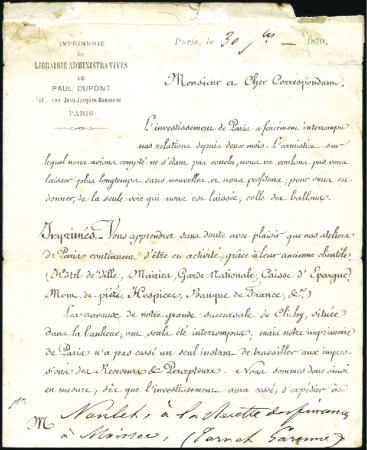 IMPRIMERIE
ET
LIBRAIRIE ADMINISTRATIVES
DE
PAUL DUPONT
rue Jean-Jacques-Rousseau
PARIS
Paris, le 30 1870.
Monsieur et Cher Correspondant,
L'investissement de Paris a forcément interrompu
nos relations depuis deux mois. L'armistice sur
lequel nous avions compté ne s'étant pas conclu, nous ne voulons pas vous
laisser plus longtemps sans nouvelles et nous profitons, pour vous en
donner, de la seule voie qui nous est laissée, celle des ballons.
Imprimés._ Vous apprendrez sans doute avec plaisir que nos ateliers
de Paris continuent d'être en activité, grâce à leur ancienne clientèle,
(Hôtel de Ville, Mairies, Garde Nationale, Caisse d'Epargne,
Mont de piété, Hospices, Banque de France, &a.)
Les travaux de notre grande succursale de Clichy, située
dans la banlieue, ont seuls été interrompus, mais notre imprimerie
de Paris n'a pas cessé un seul instant de travailler aux impres-
sions des Receveurs et Percepteurs. Nous sommes donc ainsi
en mesure, dès que l'investissement aura cessé, d'expédier à
M Nanlet, à la Recette des finances
à Moissac, (Tarn et Garonne)